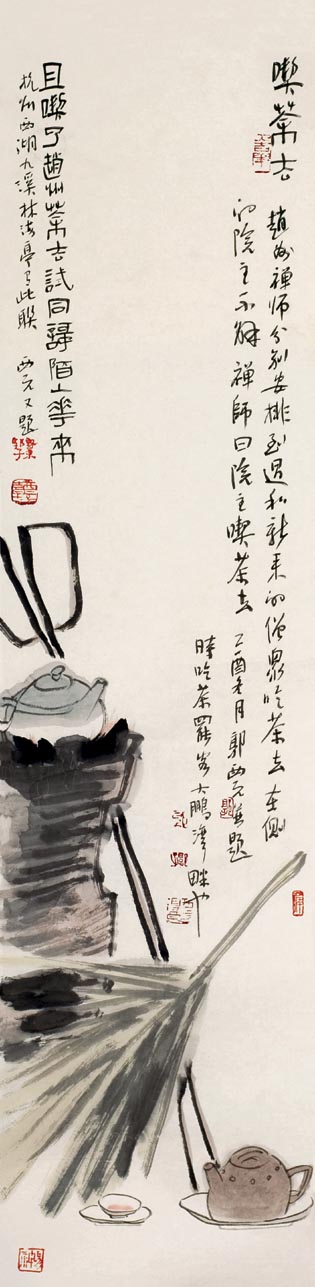 喫茶去
趙州禅师分别安排至過和新來的僧眾吃茶去在側
的院主不解禅師曰院主喫茶去 乙酉冬月郭西元并題
時吃茶罷客大鵬灣畔也
且喫了趙州茶去試同歸陌上花來
杭州西湖九溪林海亭有此联 西元又題